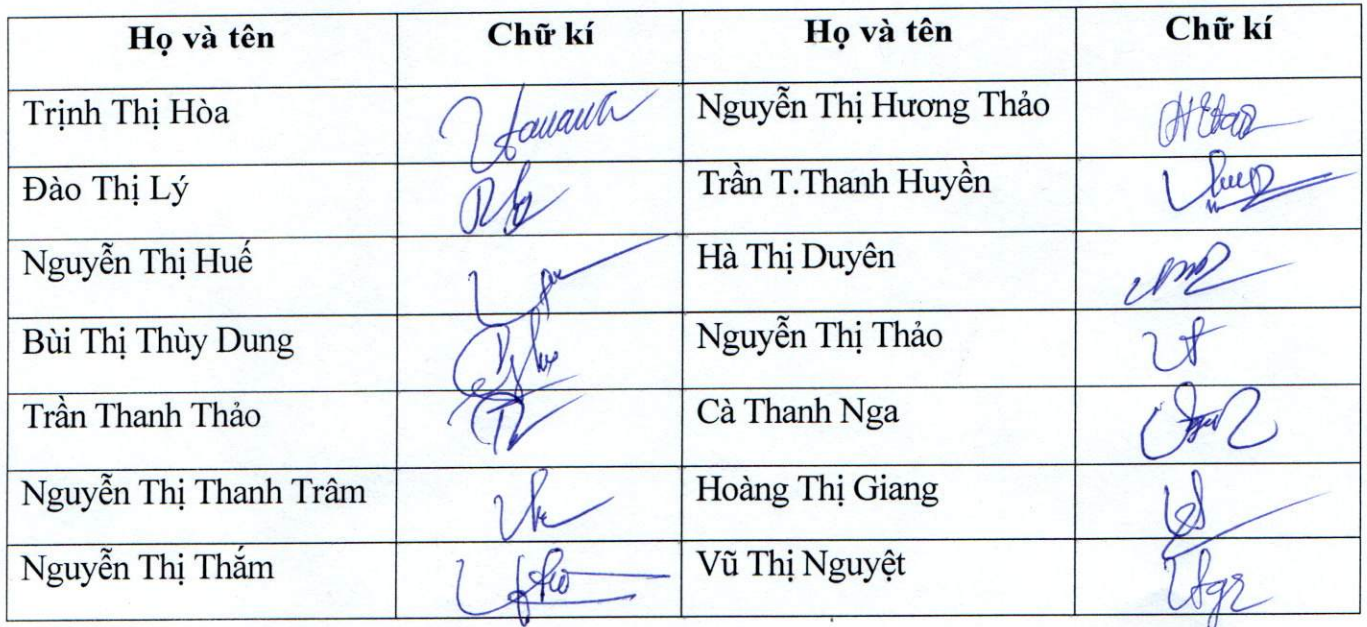 Họ và tên Chữ kí Họ và tên Chữ kí
Trịnh Thị Hòa Nguyễn Thị Hương Thảo
Đào Thị Lý Trần T.Thanh Huyền
Nguyễn Thị Huế Hà Thị Duyên
Bùi Thị Thùy Dung Nguyễn Thị Thảo
Trần Thanh Thảo Cà Thanh Nga
Nguyễn Thị Thanh Trâm Hoàng Thị Giang
Nguyễn Thị Thắm Vũ Thị Nguyệt